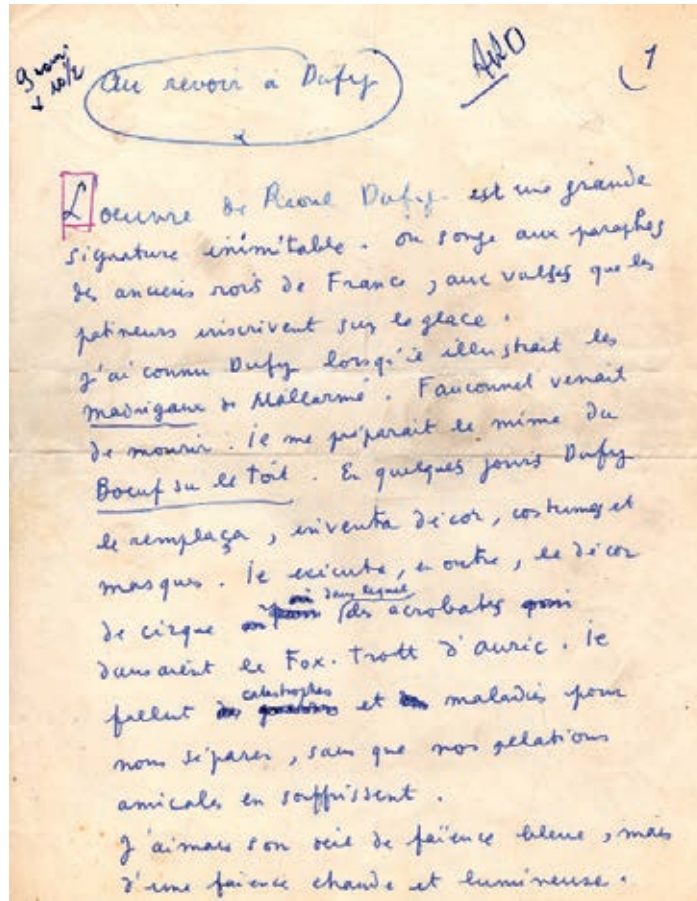 1
Au revoir à Dufy
L'oeuvre de Raoul Dufy est une grande
signature inimitable. On songe aux paraphes
des anciens rois de France, aux valses que les
patineurs inscrivent sur la glace.
J'ai connu Dufy lorsqu'il illustrait les
madrigaux de Mallarmé. Fauconnet venait
de mourir. Il me préparait le mime du
Boeuf sur le toit. En quelques jours Dufy
le remplaça, inventa décor, costumes et
masques. Il exécuta, en outre, le décor
dans lequel
de cirque des acrobates
dansaient le Fox-Trott d'Auric. Il
catastrophes
fallut et maladies pour
nous séparer, sans que nos relations
amicales en souffrissent.
J'aimais son oeil de faïence bleue, mais
d'une faïence chaude et lumineuse.